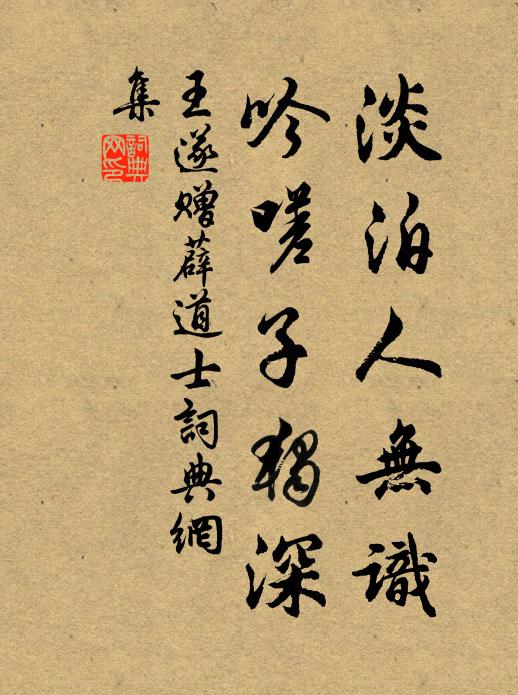 淡泊人無識
吟嗟子獨深
王遂贈薛道士詞典網
集
詞典
网印